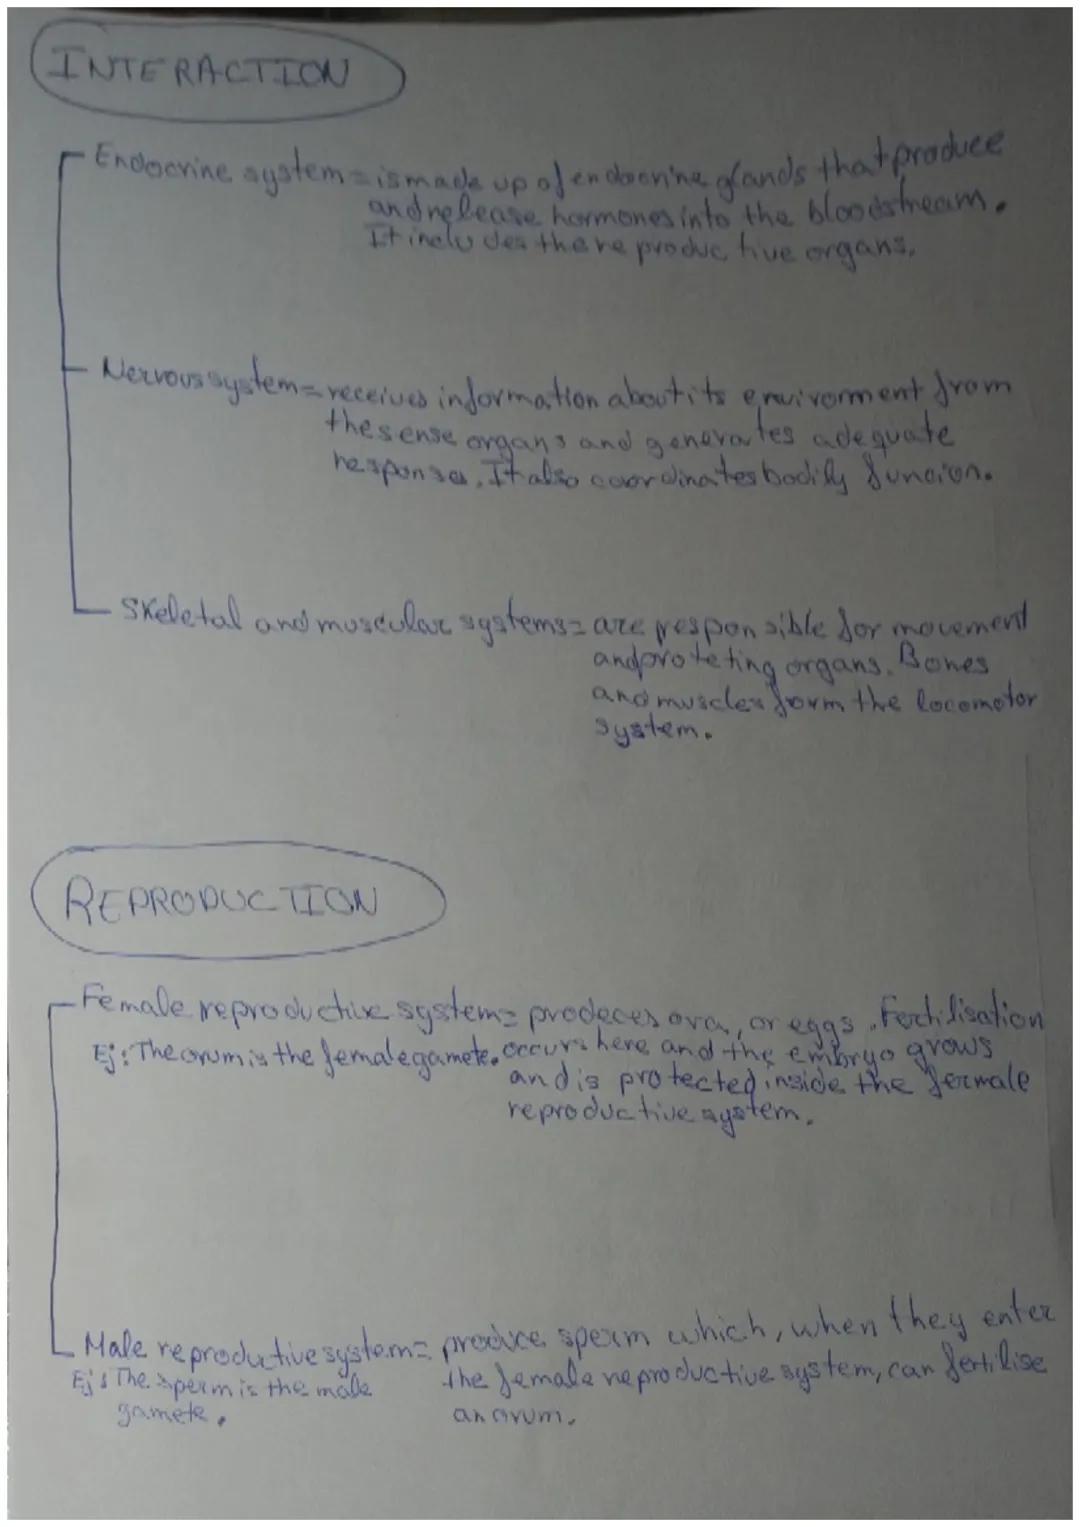 INTERACTION
Endocrine system = is made up of endocrine glands that produce
and release hormones into the bloodstream.
It includes the reproductive organs.
Nervous system = receives information about its enviroment from
the sense organs and generates adequate
response. It also coordinates bodily funcion.
Skeletal and muscular systems = are responsible for movement
and proteting organs. Bones
and muscles form the locomotor
system.
REPRODUCTION
Female reproductive system = prodeces ova, or eggs. Fertilisation
Ej: The ovum is the female gamete. occurs here and the embryo grows
and is protected inside the female
reproductive system.
Male reproductive system = produce sperm which, when they enter
Ej: The sperm is the male the female reproductive system, can fertilise
gamete. an ovum.